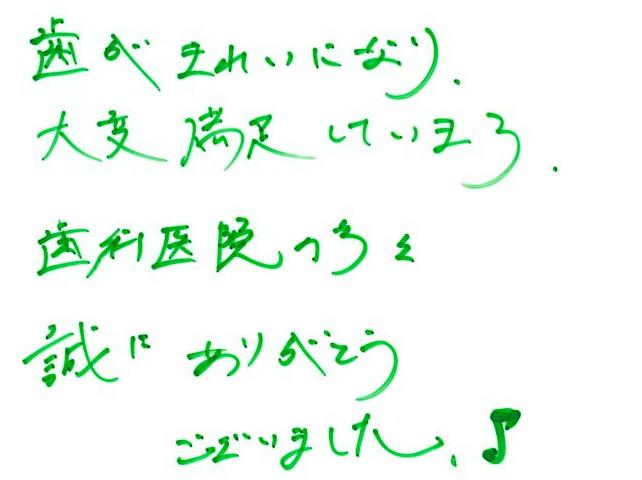 歯がきれいになり、
大変満足しています.
歯科医院の方々
誠にありがとう
ございました、♪